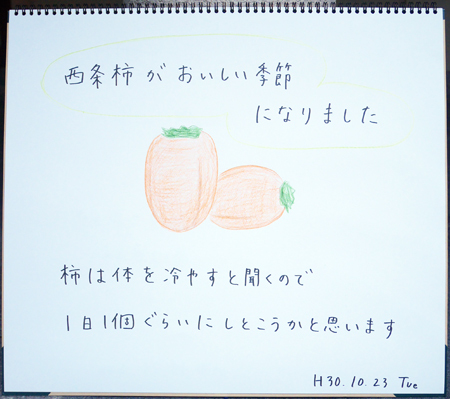 西条柿がおいしい季節
になりました
柿は体を冷やすと聞くので
1日1個ぐらいにしとこうかと思います
H30.10.23 Tue